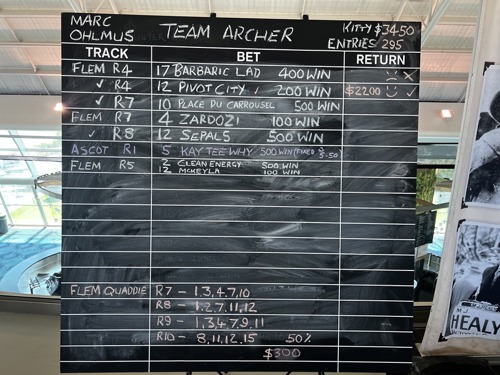 MARC OHLMUS TEAM ARCHER KITTY $3450
ENTRIES 295
TRACK BET RETURN
FLEM R4 17 BARBARIC LAD 400 WIN ✗
✓ R4 12 PIVOT CITY 200 WIN $2200 ✓
✓ R7 10 PLACE DU CARROUSEL 500 WIN
FLEM R7 4 ZARDOZI 100 WIN
✓ R8 12 SEPALS 500 WIN
ASCOT R1 5 KAY TEE WHY 500 WIN (FIXED $5.50)
FLEM R5 2 CLEAN ENERGY 500 WIN
12 MCKEYLA 100 WIN
FLEM QUADDIE R7 - 1,3,4,7,10
R8 - 1,2,7,11,12
R9 - 1,3,4,7,9,11
R10 - 8,11,12,15 50%
$300
HEALY